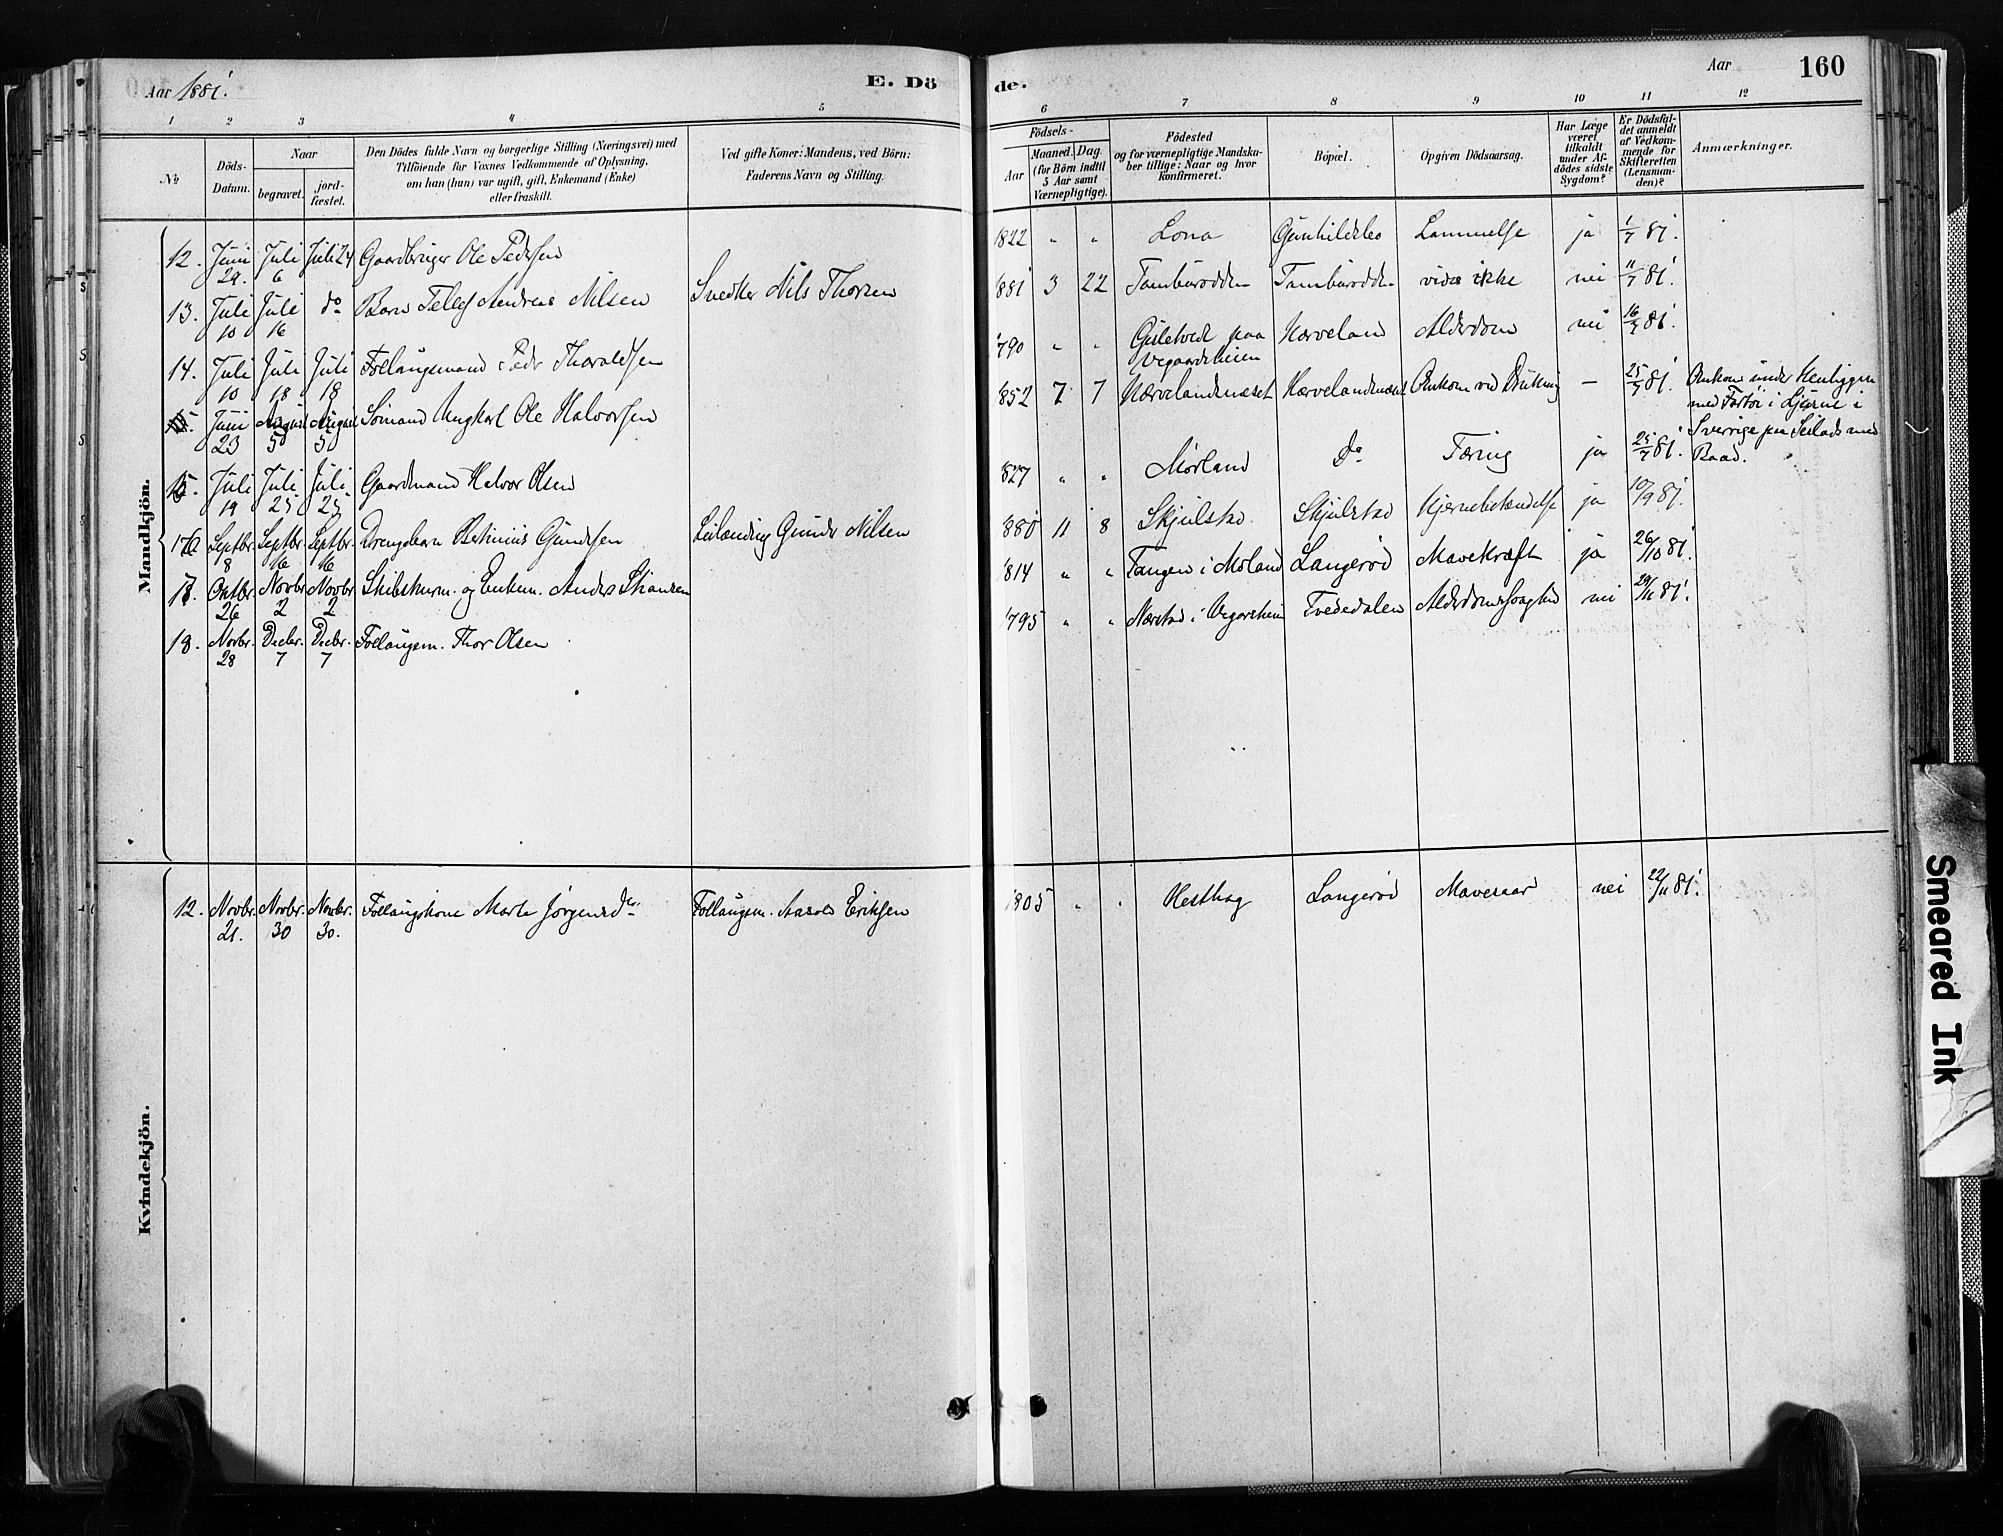 Aar 1881.
E. Dö
de.
Aar
160
1 2 3 4 5 6 7 8 9 10 11 12
No
Döds-Datum.
Naar
begravet.
jord-fæstet.
Den Dödes fulde Navn og borgerlige Stilling (Næringsvei) med
Tilföiende for Voxnes Vedkommende af Oplysning,
om han (hun) var ugift, gift, Enkemand (Enke)
eller fraskilt.
Ved gifte Koner: Mandens, ved Börn:
Faderens Navn og Stilling.
Födsels-
Aar
Maaned. Dag
(for Börn indtil
5 Aar samt
Værnepligtige).
Födested
og for værnepligtige Mandska-
ber tillige: Naar og hvor
konfirmeret.
Bopæl.
Opgiven Dödsaarsag.
Har Læge
været
tilkaldt
under Af-
dödes sidste
Sygdom?
Er Dödsfal-
det anmeldt
af Vedkom-
mende for
Skifteretten
(Lensman-
den)?
Anmærkninger.
Mandkjön.
12. Juni 29. Juli 6 Juli 24 Gaardbruger Ole Pedersen 1822 " " Lona Gunhildsbo Lammelse ja 1/7 81.
13. Juli 10 Juli 16 do Barn Tellef Andreas Nilsen Svedker Nils Thorsen 881 3 22 Tamburodden Tamburodden vides ikke nei 11/7 81.
14. Juli 10 Juli 18 Juli 18 Follaugsmand Peder Tharaldsen 790 " " Gulstvedt paa Vegaardsheien Nærveland Alderdom nei 16/7 81.
15. Juni 23 August 5 August 5 Sömand Ungkarl Ole Halvorsen 852 7 7 Nærvelandsnæset Nærvelandsnæset Omkom ved Drukning – 25/7 81. Omkom under Henliggen
med Fartöi i Ljusne i
Sverrige paa Seilads med
Baad.
15. Juli 19 Juli 25 Juli 25 Gaardmand Halvor Olsen 827 " " Mörland Do Tæring ja 25/7 81.
16. Septbr. 8 Septbr. 16 Septbr. 16 Drengebarn Betinius Gundersen Leilænding Gunder Nilsen 880 11 8 Skjulstad Skjulstad Hjernebetændelse ja 10/9 81.
17. Oktbr. 26 Novbr. 2 Novbr. 2 Skibstürm. og Enkem. Anders 814 " " Tangen i Moland Langeröd Mavekræft ja 26/10 81.
18. Novbr. 28 Decbr. 7 Decbr. 7 Follaugsm. Thor Olsen 795 " " Nærstad i Vegarsheien Tvededalen Alderdomssvaghed nei 29/11 81.
Kvindekjön.
12. Novbr. 21. Novbr. 30 Novbr. 30. Follaugskone Marte Jörgensdtr. Follaugsm. Aasold Eriksen 1805 " " Hesthag Langeröd Mavesaar nei 22/11 81.
Smeared Ink